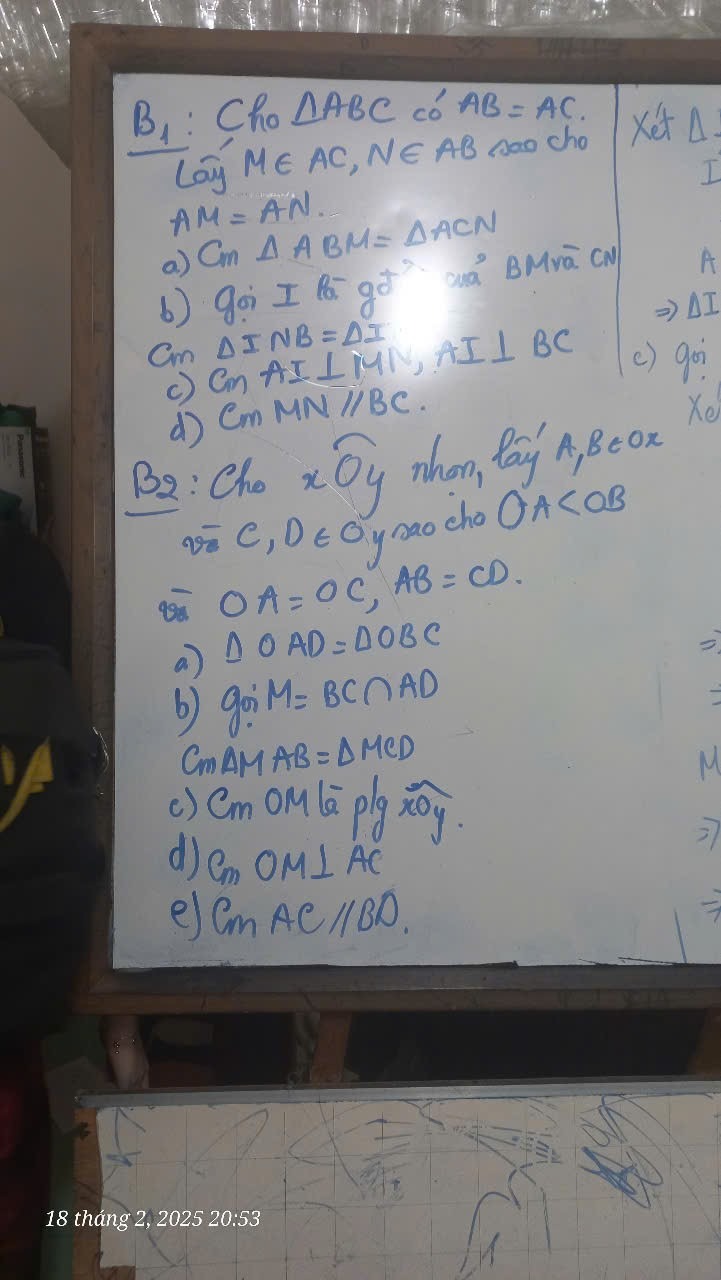 B1: Cho ΔABC có AB = AC.
Lấy M ∈ AC, N ∈ AB sao cho
AM = AN.
a) Cm ΔABM = ΔACN
b) gọi I là BM và CN
Cm ΔINB = ΔI
c) Cm AI ⊥ MN, AI ⊥ BC
d) Cm MN // BC.
B2: Cho xÔy nhọn, lấy A, B ∈ Ox
và C, D ∈ Oy sao cho OA < OB
và OA = OC, AB = CD.
a) ΔOAD = ΔOBC
b) gọi M = BC ∩ AD
Cm ΔMAB = ΔMCD
c) Cm OM là p/g xÔy.
d) Cm OM ⊥ AC
e) Cm AC // BD.
Xét Δ
I
A
⇒ ΔI
c) gọi
Xé
M
⇒
⇒
Panasonic
18 tháng 2, 2025 20:53